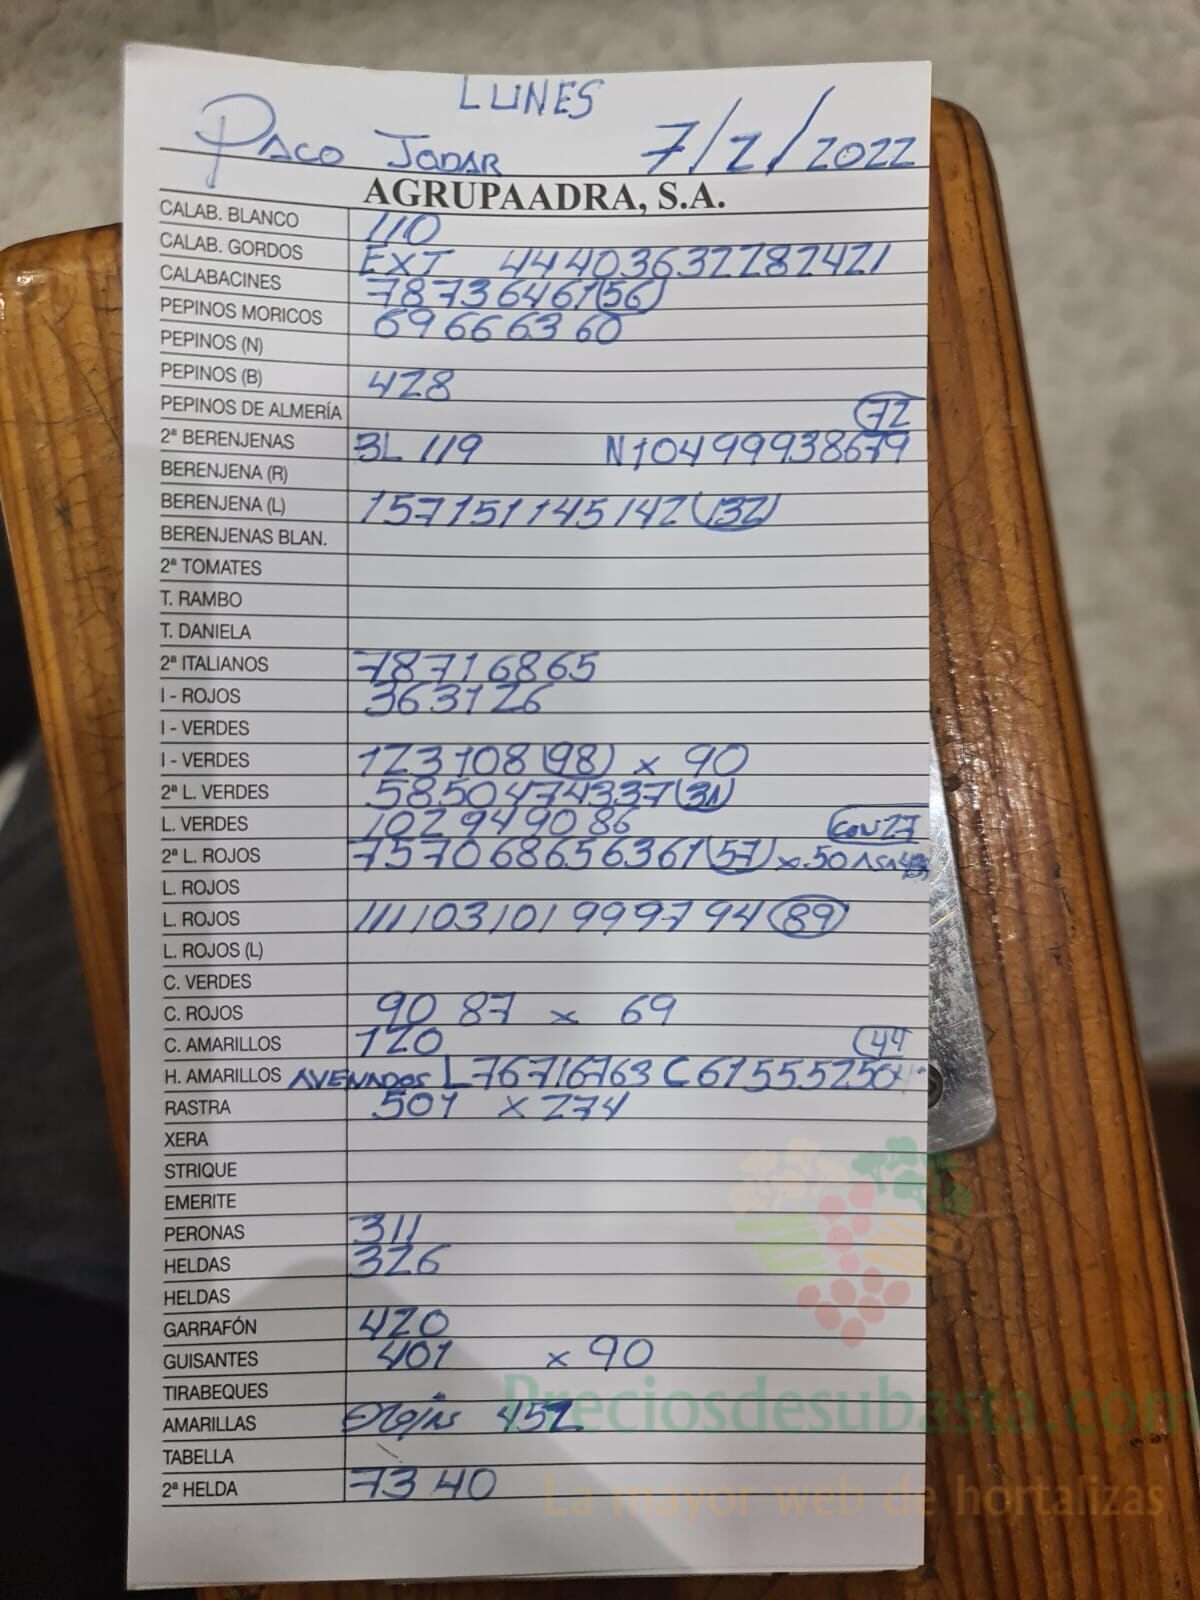 LUNES
PACO JODAR 7/2/2022
AGRUPAADRA, S.A.
CALAB. BLANCO 110
CALAB. GORDOS EXT 44 40 36 32 28 24 21
CALABACINES 78 73 64 61 (56)
PEPINOS MORICOS 69 66 63 60
PEPINOS (N)
PEPINOS (B) 428
PEPINOS DE ALMERÍA (72)
2ª BERENJENAS BL 119 N 104 99 93 86 79
BERENJENA (R)
BERENJENA (L) 157 151 145 142 (132)
BERENJENAS BLAN.
2ª TOMATES
T. RAMBO
T. DANIELA
2ª ITALIANOS 78 71 68 65
I - ROJOS 36 31 26
I - VERDES
I - VERDES 123 108 (98) x 90
2ª L. VERDES 58 50 47 43 37 (31)
L. VERDES 102 94 90 86 CON 27
2ª L. ROJOS 75 70 68 65 63 61 (57) x 50
L. ROJOS
L. ROJOS 111 103 101 99 97 94 (89)
L. ROJOS (L)
C. VERDES
C. ROJOS 90 87 x 69
C. AMARILLOS 120 (44
H. AMARILLOS AVENADOS L 76 71 67 63 C 61 55 52 50
RASTRA 501 x 274
XERA
STRIQUE
EMERITE
PERONAS 311
HELDAS 326
HELDAS
GARRAFÓN 420
GUISANTES 401 x 90
TIRABEQUES
AMARILLAS 452
TABELLA
2ª HELDA 73 40
Preciosdesubasta.com
La mayor web de hortalizas